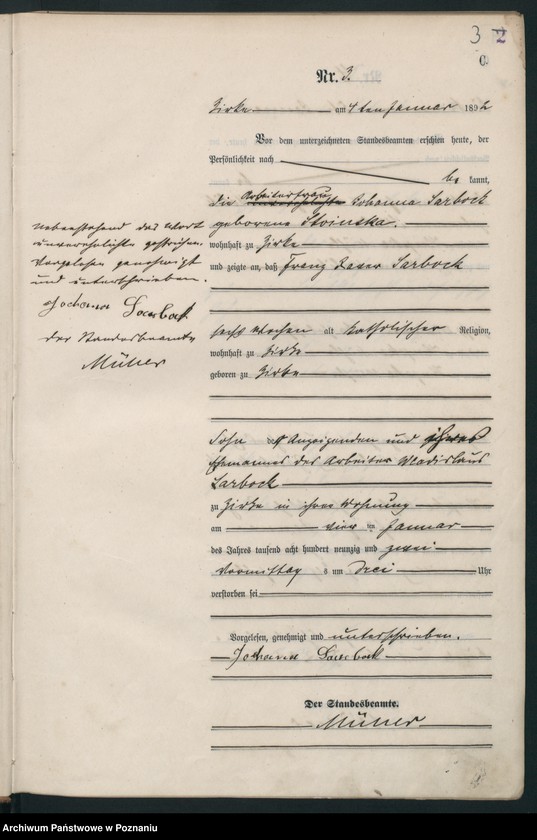 3 2
C.
Nr. 3.
Zirke am 4ten Januar 1892
Vor dem unterzeichneten Standesbeamten erschien heute, der
Persönlichkeit nach
be kannt,
die Arbeiterfrau unverehelichte Johanna Sarbock
geborene Stoinska.
wohnhaft zu Zirke
und zeigte an, daß Franz Xaver Sarbock
sechs Wochen alt katholischer Religion,
wohnhaft zu Zirke
geboren zu Zirke
Sohn der Anzeigenden und ihres
Ehemannes des Arbeiter Wladislaus
Sarbock
zu Zirke in ihrer Wohnung
am vier ten Januar
des Jahres tausend acht hundert neunzig und zwei
Vormittags um drei Uhr
verstorben sei
Vorgelesen, genehmigt und unterschrieben.
Johana Sarbok
Der Standesbeamte.
Müller
Nebenstehend das Wort
unverehelichte gestrichen.
Vorgelesen genehmigt
und unterschrieben.
Johana Sarbok
Der Standesbeamte
Müller
Archiwum Państwowe w Poznaniu